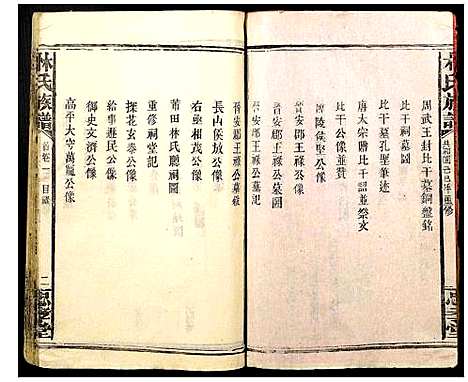 林氏族譜
民國己巳年重修
周武王封比干墓銅盤銘
比干祠墓圖
比干墓孔聖筆迹
唐太宗贈比干詔並祭文
比干公像並贊
晉安郡王祿公墓圖
晉安郡王祿公墓記
晉安郡王祿公墓
長山侯坡公像
右丞相茂公像
莆田林氏廳祠圖
重修祠堂記
探花玄泰公像
給事遜民公像
御史文濟公像
高平太守萬寵公像
林氏族譜
首卷一 目錄
二